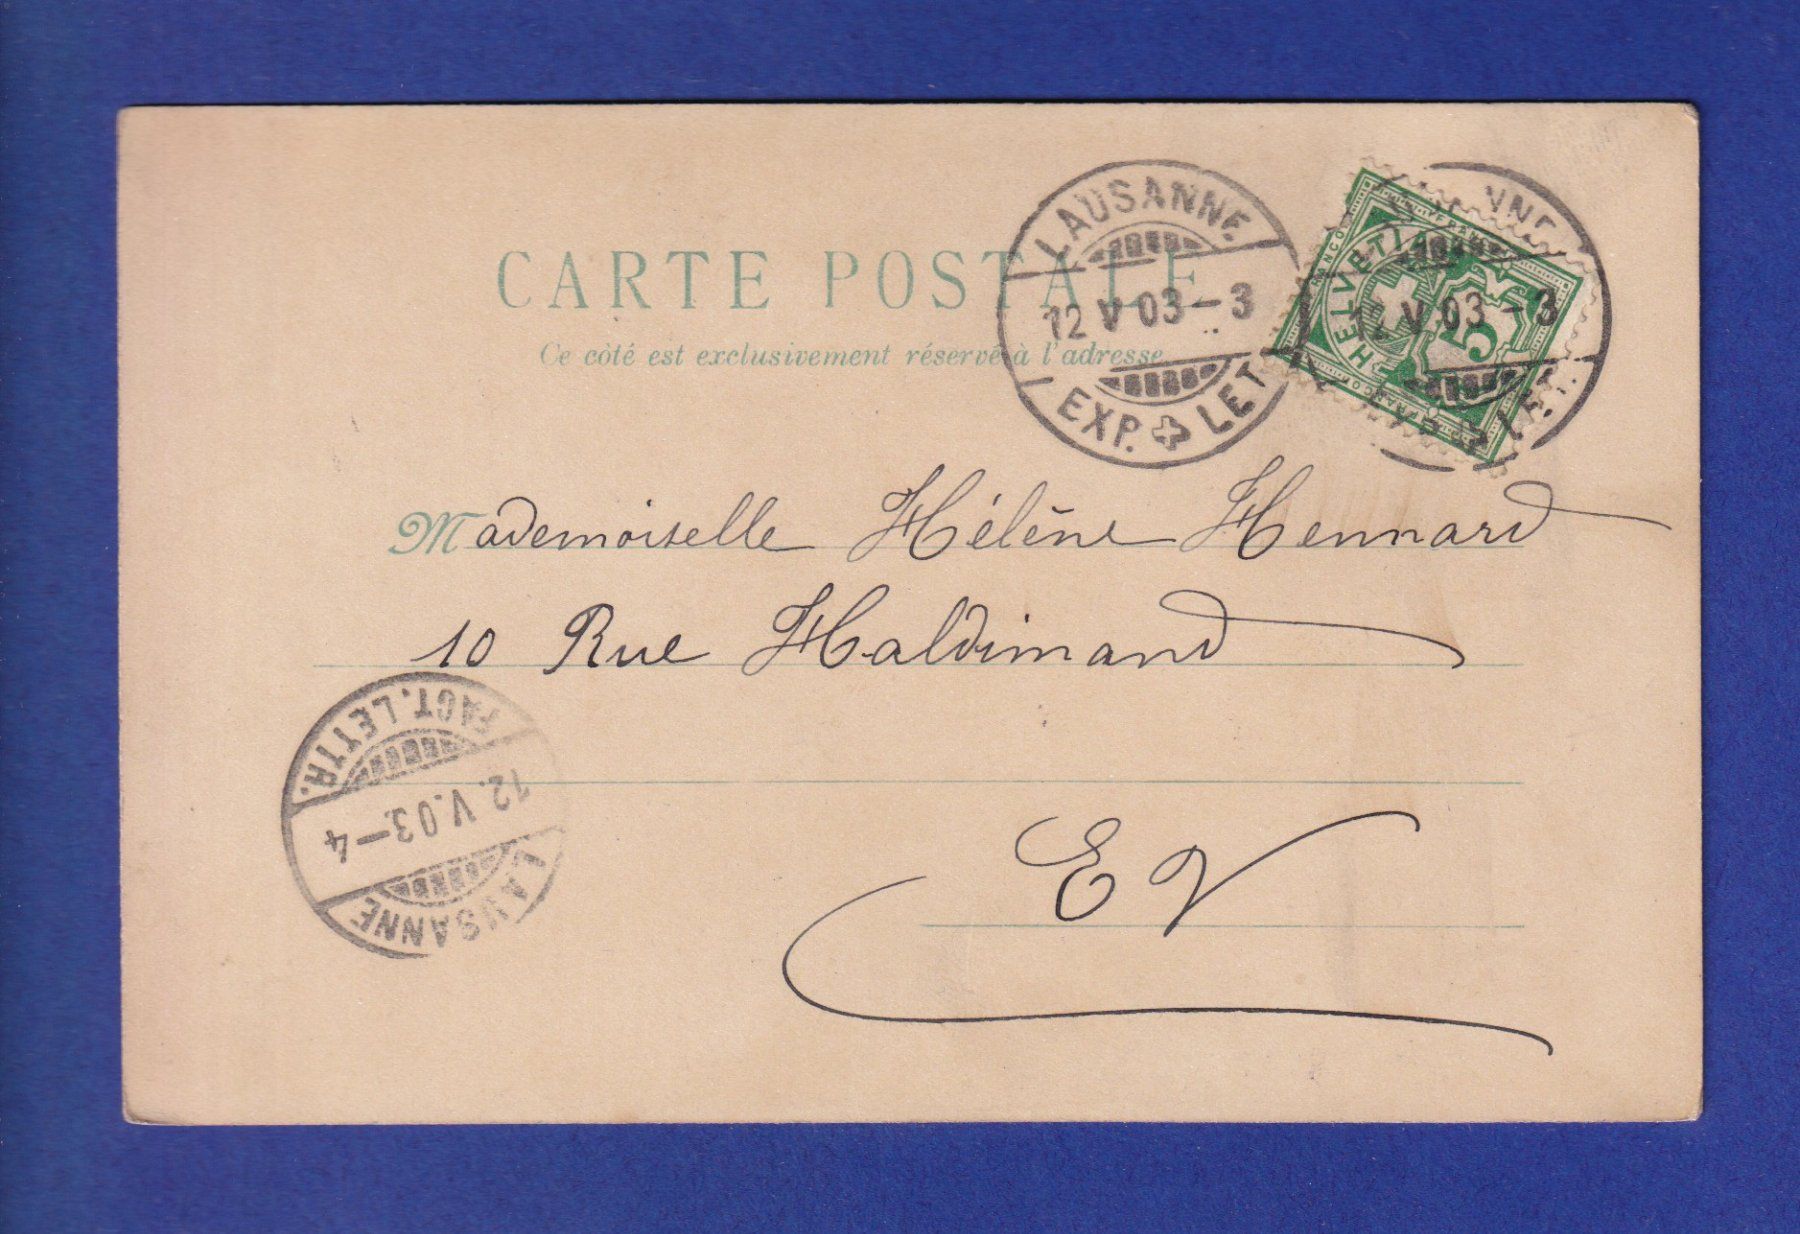 CARTE POSTALE
Ce côté est exclusivement réservé à l'adresse
LAUSANNE
12 V 03-3
EXP. LET
FRANCO
HELVETIA
5
12 V 03-3
Mademoiselle Hélène Hennard
10 Rue Haldimand
EV
FACT. LETTR.
12. V. 03.-4
LAUSANNE